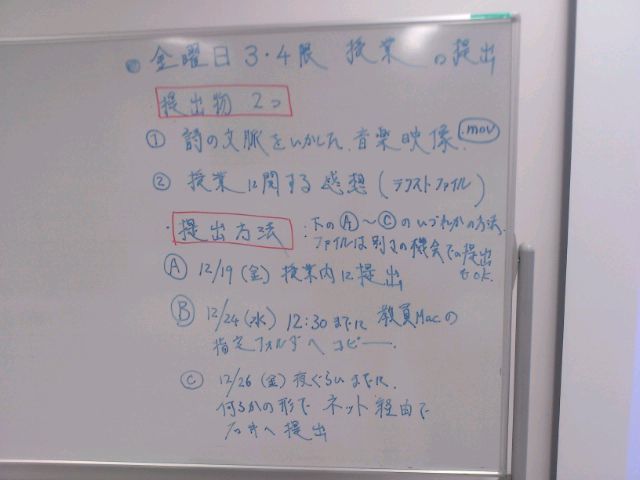 ● 金曜日 3・4限 授業 の提出
提出物 2つ
① 詩の文脈をいかした、音楽映像. .mov
② 授業に関する感想 (テクストファイル)
・提出方法 : 下のⒶ〜Ⓒのいづれかの方法.
ファイルは別々の機会での提出
もOK.
Ⓐ 12/19 (金) 授業内に提出
Ⓑ 12/24 (水) 12:30までに 教員Macの
指定フォルダへ コピー.
Ⓒ 12/26 (金) 夜ぐらいまでに.
何らかの形で ネット経由で
へ提出